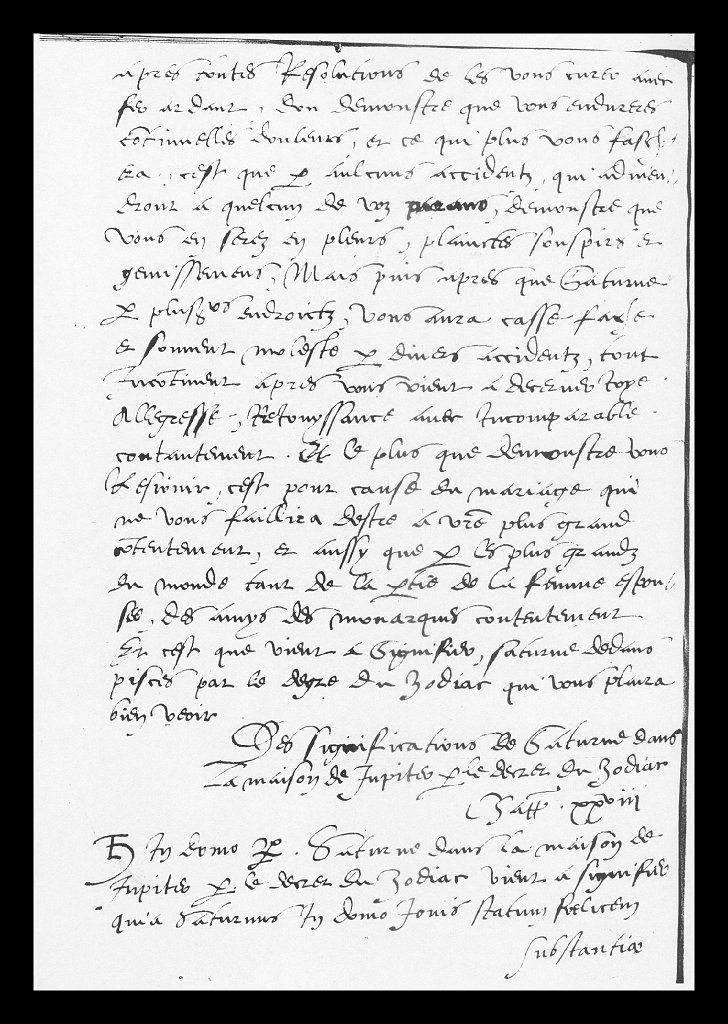 apres toutes Resolutions de les vous curer avec
feu ardant, don demonstre que vous endureres
cõtinuelles douleurs, et ce qui plus vous fasch-
era, c'est que p aulcuns accidentz, qui advien-
dront a quelcun de voz parans, demonstre que
vous en serez en pleurs, plainctes souspirs et
gemissemens, Mais puis apres que Saturne
p plusrs endroictz, vous aura casse fasche
et souvent moleste p divers accidentz, tout
Incõtinent apres vous vient a decerner Joye
Allegresse, Rejouyssance avec Incomparable
contantement. Et le plus que demonstre vous
Resjouir, c'est pour cause du mariage qui
ne vous faillira destre a vrẽ plus grand
cõtentement, et aussy que p les plus grandz
du monde tant de la ptie de la femme espou-
see, des amys des monarques contentement
Et c'est que vient a Signifier, saturne dedans
pisces par le degre du Zodiac qui vous plaira
bien veoir
Des significations de Saturne dans
La maison de Jupiter p le decret du Zodiac
xxviii
♄ In domo ♃. Saturne dans la maison de
Jupiter p le decret du Zodiac vient a signifier
qu'a Saturnus In domo Jovis statum foelicem
substantiae